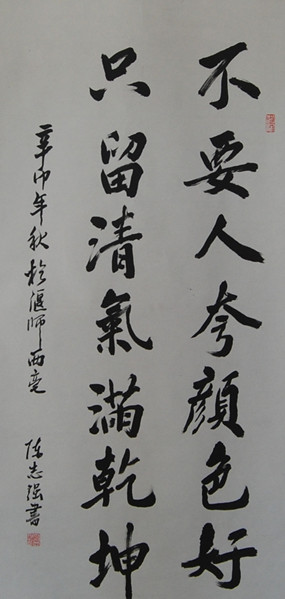 不要人夸顔色好
只留清氣滿乾坤
辛卯年秋於偃師西亳
陈志强書